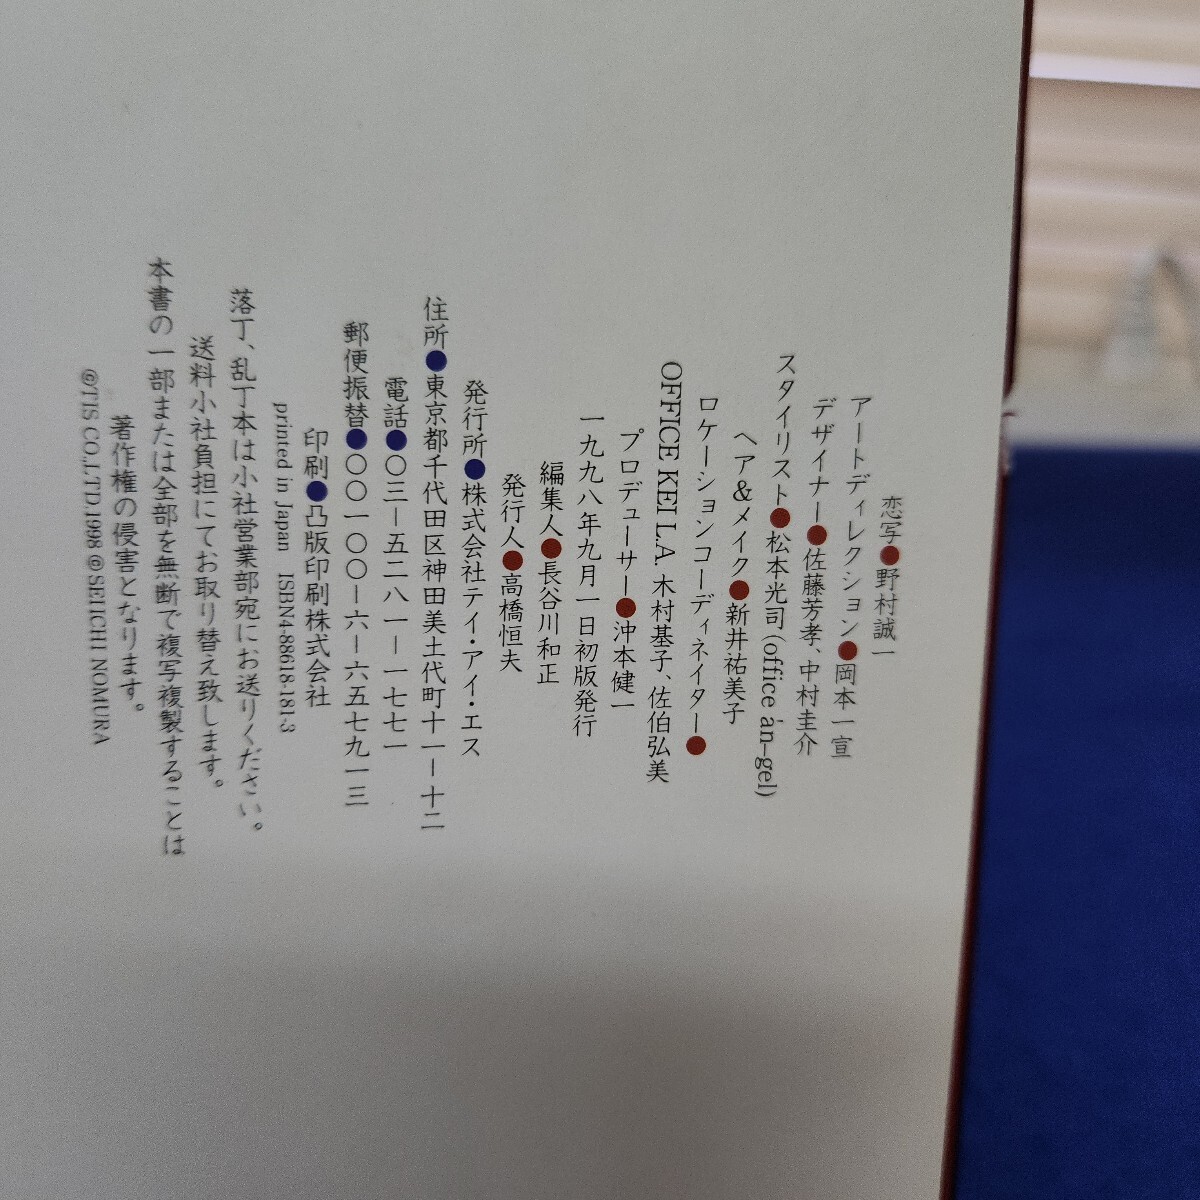 恋写●野村誠一
アートディレクション●岡本一宣
デザイナー●佐藤芳孝、中村圭介
スタイリスト●松本光司(office än-gel)
ヘア&メイク●新井祐美子
ロケーションコーディネイター●
OFFICE KEI L.A. 木村基子、佐伯弘美
プロデューサー●沖本健一
一九九八年九月一日初版発行
編集人●長谷川和正
発行人●高橋恒夫
発行所●株式会社テイ・アイ・エス
住所●東京都千代田区神田美土代町十一ー十二
電話●〇三ー五二八一ー一七七一
郵便振替●〇〇一〇〇ー六ー六五七九一三
印刷●凸版印刷株式会社
printed in Japan ISBN4-88618-181-3
落丁、乱丁本は小社営業部宛にお送りください。
送料小社負担にてお取り替え致します。
本書の一部または全部を無断で複写複製することは
著作権の侵害となります。
@TIS CO.,LTD.1998 @SEIICHI NOMURA